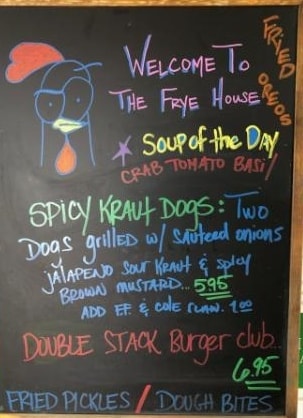 FRIED OREOS
WELCOME TO
THE FRYE HOUSE
SOUP of the DAY
CRAB TOMATO BASIl
SPICY KRAUT DOGS: Two
Dogs grillED w/ SAuteed onions
JALAPENO SOUr KRAUT & Spicy
BROWN MUSTARD... 5.95
ADD F.F. & COLE SLAW. 1.00
DOUBLE STACK Burger club..
6.95
FRIED PICKLES / DOUGH BITES